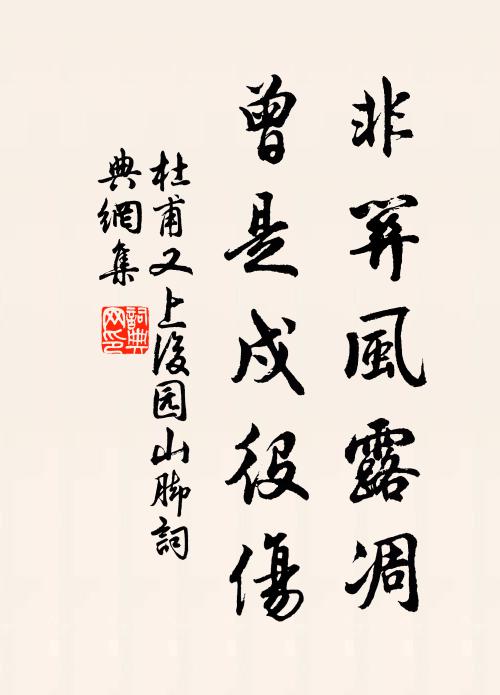 非關風露凋
曾是戍役傷
杜甫又上後园山脚詞
典網集
詞典
网印